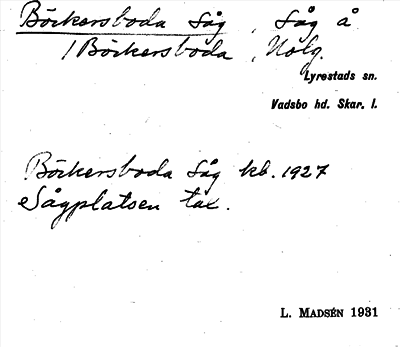 Böckersboda Såg, Såg å
/ Böckersboda, Nolg.
Lyrestads sn.
Vadsbo hd. Skar. l.
Böckersboda Såg kb. 1927
Sågplatsen tax.
L. MADSÉN 1931